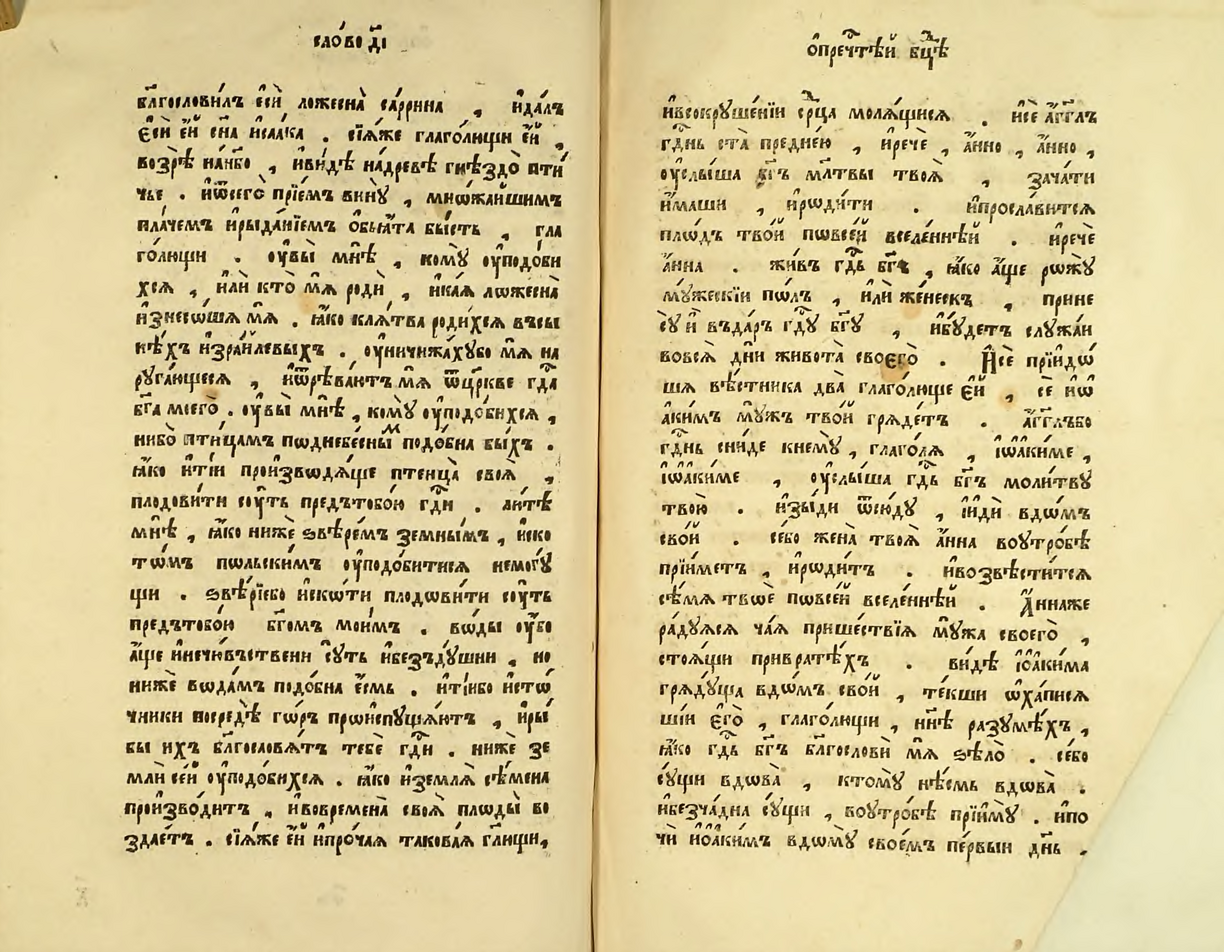 сло́во д҃і
блгⷭ҇ослови́лъ є҆сѝ ложеснѐ са́ррина , и҆да́лъ
є҆сѝ є҆́и сн҃а и҆саа́ка . сїѧ́же глаго́лющи є҆́и ,
возрѣ̀ нане́бо , и҆ви́дѣ надре́вѣ гнѣздо̀ пти
чье . и҆ѿсегѡ̀ прїе́мъ винꙋ̀ , мно́жаишимъ
пла́чемъ и҆рыда́нїемъ ѻ҆б̾ѧ́та бы́сть , гла
го́лющи . ᲂу҆вы̀ мнѣ̀ , комꙋ̀ ᲂу҆подо́би
хсѧ , и҆лѝ кто́ мѧ родѝ , и҆ка́ѧ ложесна̀
и҆знесо́шѧ мѧ̀ . ꙗ҆́ко клѧ́тва роди́хсѧ въсы
нѣ́хъ и҆зра́илевыхъ . ᲂу҆ничижа́хꙋбо мѧ̀ на
рꙋга́ющесѧ , и҆ѿрѣва́ютъ мѧ ѿцр҃кве гдⷭ҇а
бг҃а моегѡ̀ . ᲂу҆вы̀ мнѣ̀ , комꙋ̀ ᲂу҆подо́бихсѧ ,
нибо̀ пти́цамъ пѡднебе́сныⷨ подо́бна бы́хъ .
ꙗ҆́ко и҆ті́и произвѡдѧ́ще птенца̀ своѧ̀ ,
плодови́ти сꙋ́ть предътобо́ю гдⷭ҇и . лю́тѣ
мнѣ̀ , ꙗ҆́ко нижѐ ѕвѣре́мъ земны́мъ , и҆ско
тѡ́мъ пѡльски́мъ ᲂу҆подо́битисѧ немогꙋ́
щи . ѕвѣ́рїебо и҆ско́ти плодѡви́ти сꙋ́ть
предътобо́ю бг҃омъ мои́мъ . вѡды̀ ᲂу҆́бо
а҆́ще и҆нечю́въственни сꙋ́ть и҆безъдꙋ́шни , но
нижѐ вѡда́мъ подо́бна є҆́смь . и҆ті́ибо и҆сто́
чники посредѣ̀ го́ръ происпꙋща́ютъ , и҆ры́
бы и҆́хъ блгⷭ҇ословѧ́тъ тебѐ гдⷭ҇и . нижѐ зе
млѝ се́и ᲂу҆подо́бихсѧ . ꙗ҆́ко и҆землѧ̀ сѣ́мена
произво́дитъ , и҆вовремена̀ своѧ̀ плѡды̀ во
здае́тъ . сїѧ́же є҆́и и҆про́чаѧ такова́ѧ гл҃ющи,
ѻ҆пречⷭ҇тѣи бцⷣѣ
и҆всокрꙋше́нїи срⷣца молѧ́щисѧ . и҆сѐ а҆́гг҃лъ
гдⷭ҇нь ста̀ предне́ю , и҆речѐ , а҆́нно , а҆́нно ,
ᲂу҆слы́ша бг҃ъ мл҃твы твоѧ̀ , зача́ти
и҆́маши , и҆роди́ти . и҆просла́витсѧ
пло́дъ тво́й пѡвсе́й вселе́ннѣй . и҆речѐ
а҆́нна . жи́въ гдⷭ҇ь бг҃ъ , ꙗ҆́ко а҆́ще рѡжꙋ̀
мꙋ́жескїи по́лъ , и҆лѝ же́нескъ , прине
сꙋ̀ и҆̀ въда́ръ гдⷭ҇ꙋ бг҃ꙋ , и҆бꙋ́детъ слꙋжаи
вовсѧ̀ дн҃и живота̀ своегѡ̀ . И҆сѐ прїидо́
шѧ вѣ́стника два̀ глаго́люще є҆́и , сѐ и҆ѡ
аки́мъ мꙋ́жъ тво́й грѧде́тъ . а҆́гг҃лъбо
гдⷭ҇нь сни́де кнемꙋ̀ , глаго́лѧ , і҆ѡаки́ме ,
і҆ѡаки́ме , ᲂу҆слы́ша гдⷭ҇ь бг҃ъ моли́твꙋ
твою̀ . и҆зы́ди ѿсю́дꙋ , и҆и́ди вдо́мъ
сво́й . се́бо жена̀ твоѧ̀ а҆́нна воᲂутро́бѣ
прїи́метъ , и҆роди́тъ . и҆возвѣсти́тсѧ
сѣ́мѧ твоѐ пѡвсе́й вселе́ннѣй . А҆́ннаже
ра́дꙋѧсѧ ча́ѧ прише́ствїѧ мꙋ́жа своегѡ̀ ,
стоѧ́щи привратѣ́хъ . ви́дѣ і҆оаки́ма
грѧдꙋ́ща вдо́мъ сво́й , те́кши ѡ҆ха́писѧ
ши́и є҆гѡ̀ , глаго́лющи , нн҃ѣ разꙋмѣ́хъ ,
ꙗ҆́ко гдⷭ҇ь бг҃ъ блгⷭ҇ословѝ мѧ̀ ѕѣлѡ̀ . се́бо
сꙋ́щи вдова̀ , ктомꙋ̀ нѣ́смь вдова̀ .
и҆безча́дна сꙋ́щи , воᲂутро́бѣ прїимꙋ̀ . и҆по
чѝ и҆оаки́мъ вдомꙋ̀ свое́мъ пе́рвыи дн҃ь .